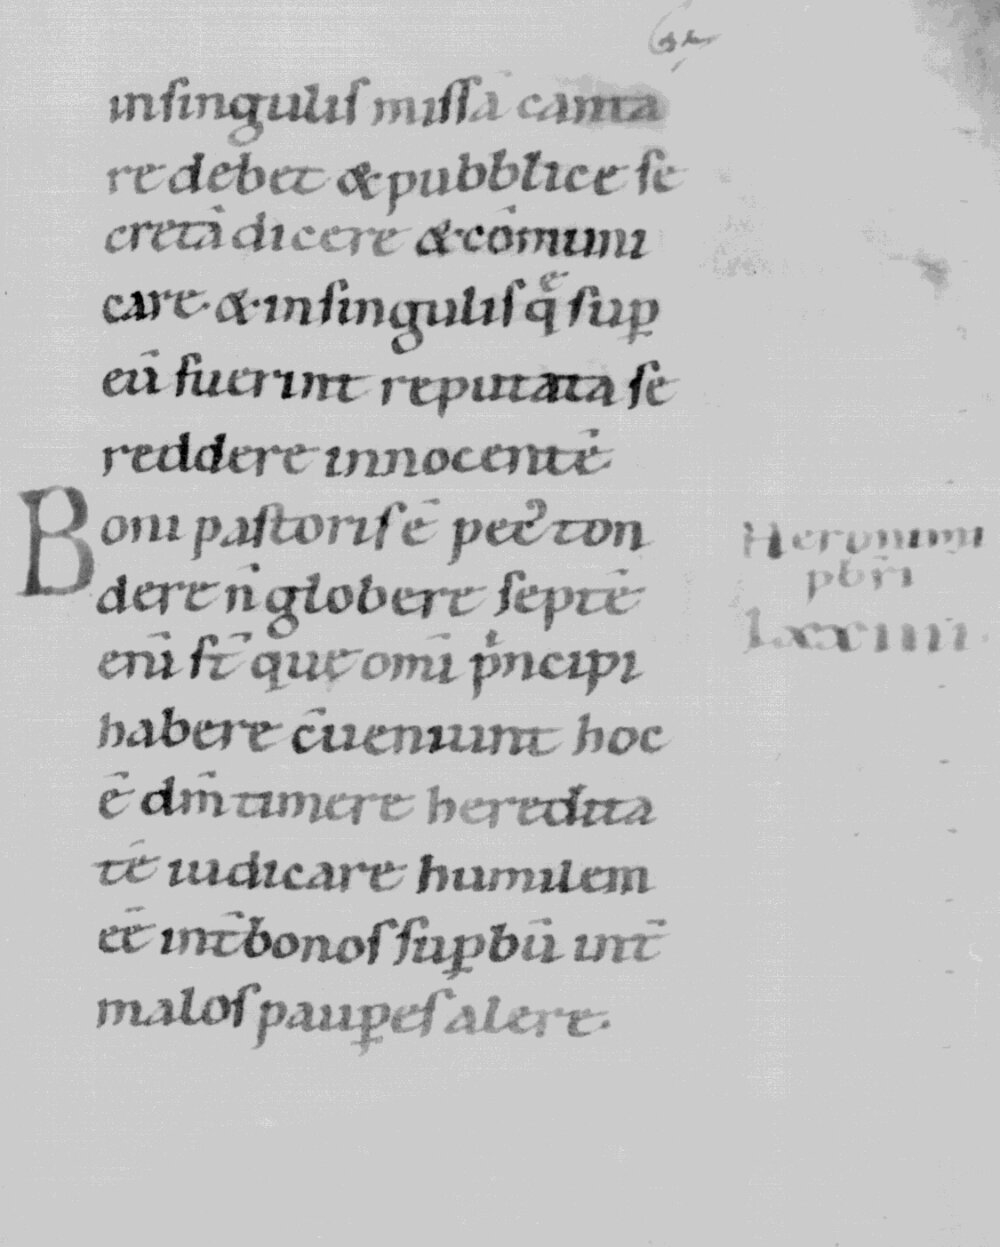 insingulis missā canta
re debet & pubblice se
cretā dicere & cōmuni
care· & insingulis qͤ suꝑ
eū fuerint reputata se
reddere innocentē·
Boni pastoris ē pecꝰ ton
dere n̄ globere septē
eni ̄ st̄ que omī pͥncipi
habere c̄ueniunt hoc
ē dm̄ timere heredita
tē iudicare humilem
eē int̄ bonos suꝑbū int̄
malos pauꝑes alere·
Heronimi
pbr̄i
lxxiiii·